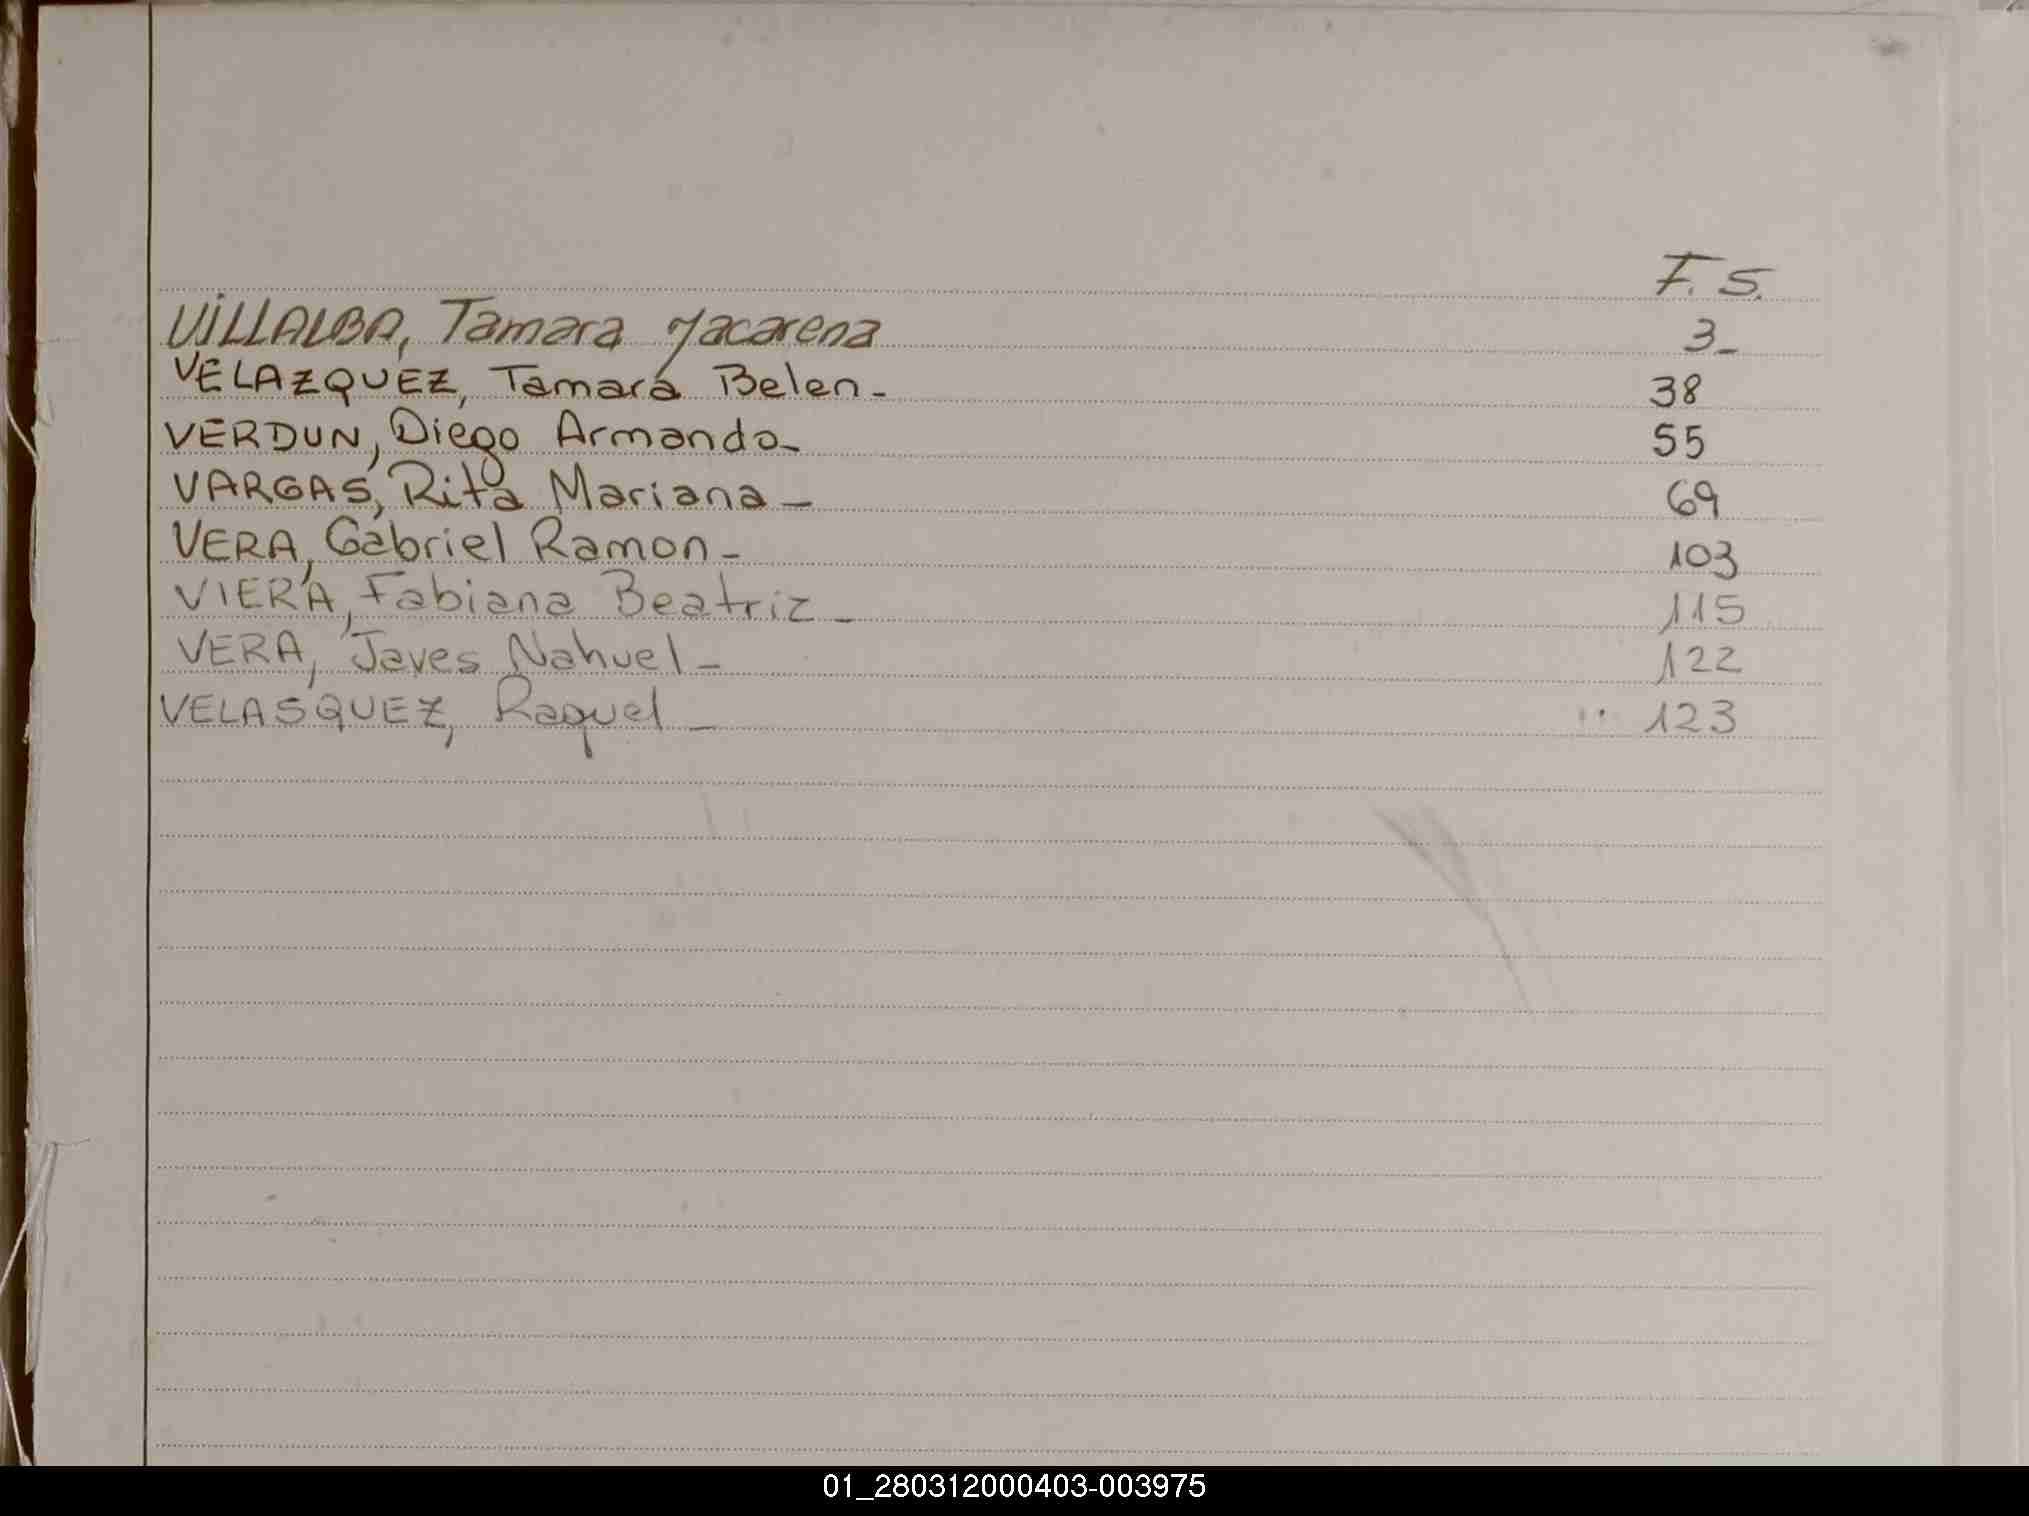 F. S.
VILLALBA, Tamara Macarena 3-
VELAZQUEZ, Tamara Belen- 38
VERDUN, Diego Armando- 55
VARGAS, Rita Mariana- 69
VERA, Gabriel Ramon- 103
VIERA, Fabiana Beatriz- 115
VERA, Javes Nahuel- 122
VELASQUEZ, Raquel- 123
01_280312000403-003975